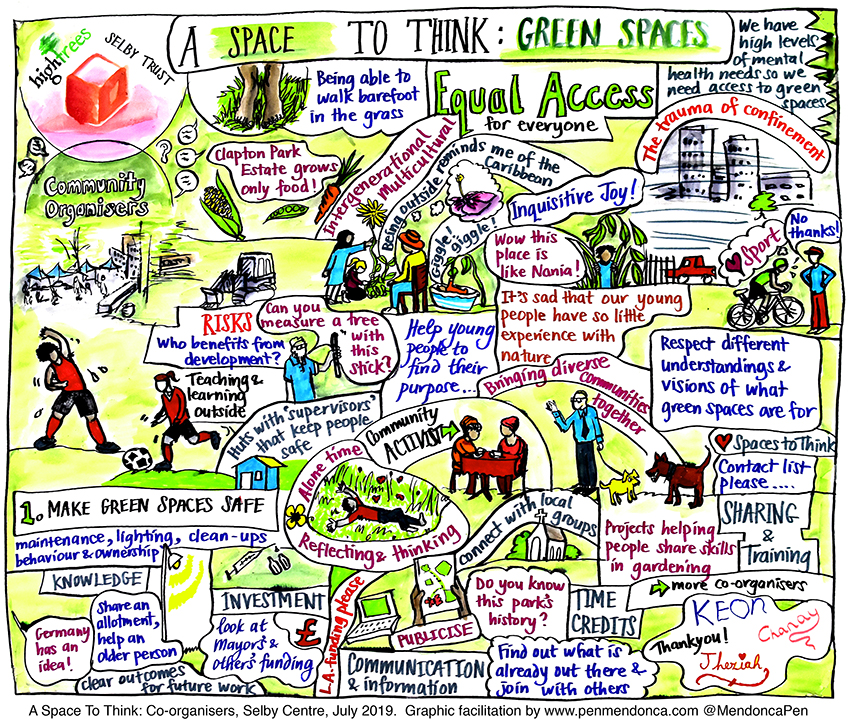 highTrees
SELBY TRUST
A SPACE TO THINK: GREEN SPACES
We have
high levels
of mental
health needs so we
need access to green
spaces
Being able to
walk barefoot
in the grass
Equal Access
for everyone
The trauma of confinement
Community
Organisers
Clapton Park
Estate grows
only food!
Intergenerational
Multicultural
Being outside reminds me of the
Caribbean
Giggle!
Giggle!
Inquisitive Joy!
Wow this
place is
like Nania!
Sport
No
thanks!
RISKS
Who benefits from
development?
Can you
measure a tree
with
this
stick?
Help young
people to
find their
purpose...
It's sad that our young
people have so little
experience with
nature
Respect different
understandings &
visions of what
green spaces are for
Teaching &
learning
outside
Huts with 'supervisors'
that keep people
safe
Community
ACTIVIST
Bringing diverse
communities
together
Spaces to Think
Contact list
please ....
Alone time
Reflecting & thinking
1. MAKE GREEN SPACES SAFE
maintenance, lighting, clean-ups
behaviour & ownership
connect with local
groups
Projects helping
people share skills
in gardening
SHARING
&
Training
KNOWLEDGE
Germany
has an
idea!
Share an
allotment,
help an
older person
clear outcomes
for future work
INVESTMENT
look at
Mayor's &
others' funding
£
L.A. funding please
PUBLICISE
COMMUNICATION
& information
Do you know
this park's
history?
TIME
CREDITS
Find out what is
already out there &
join with others
more co-organisers
KEON
Thankyou!
Chanay
Jheziah
A Space To Think: Co-organisers, Selby Centre, July 2019. Graphic facilitation by www.penmendonca.com @MendoncaPen